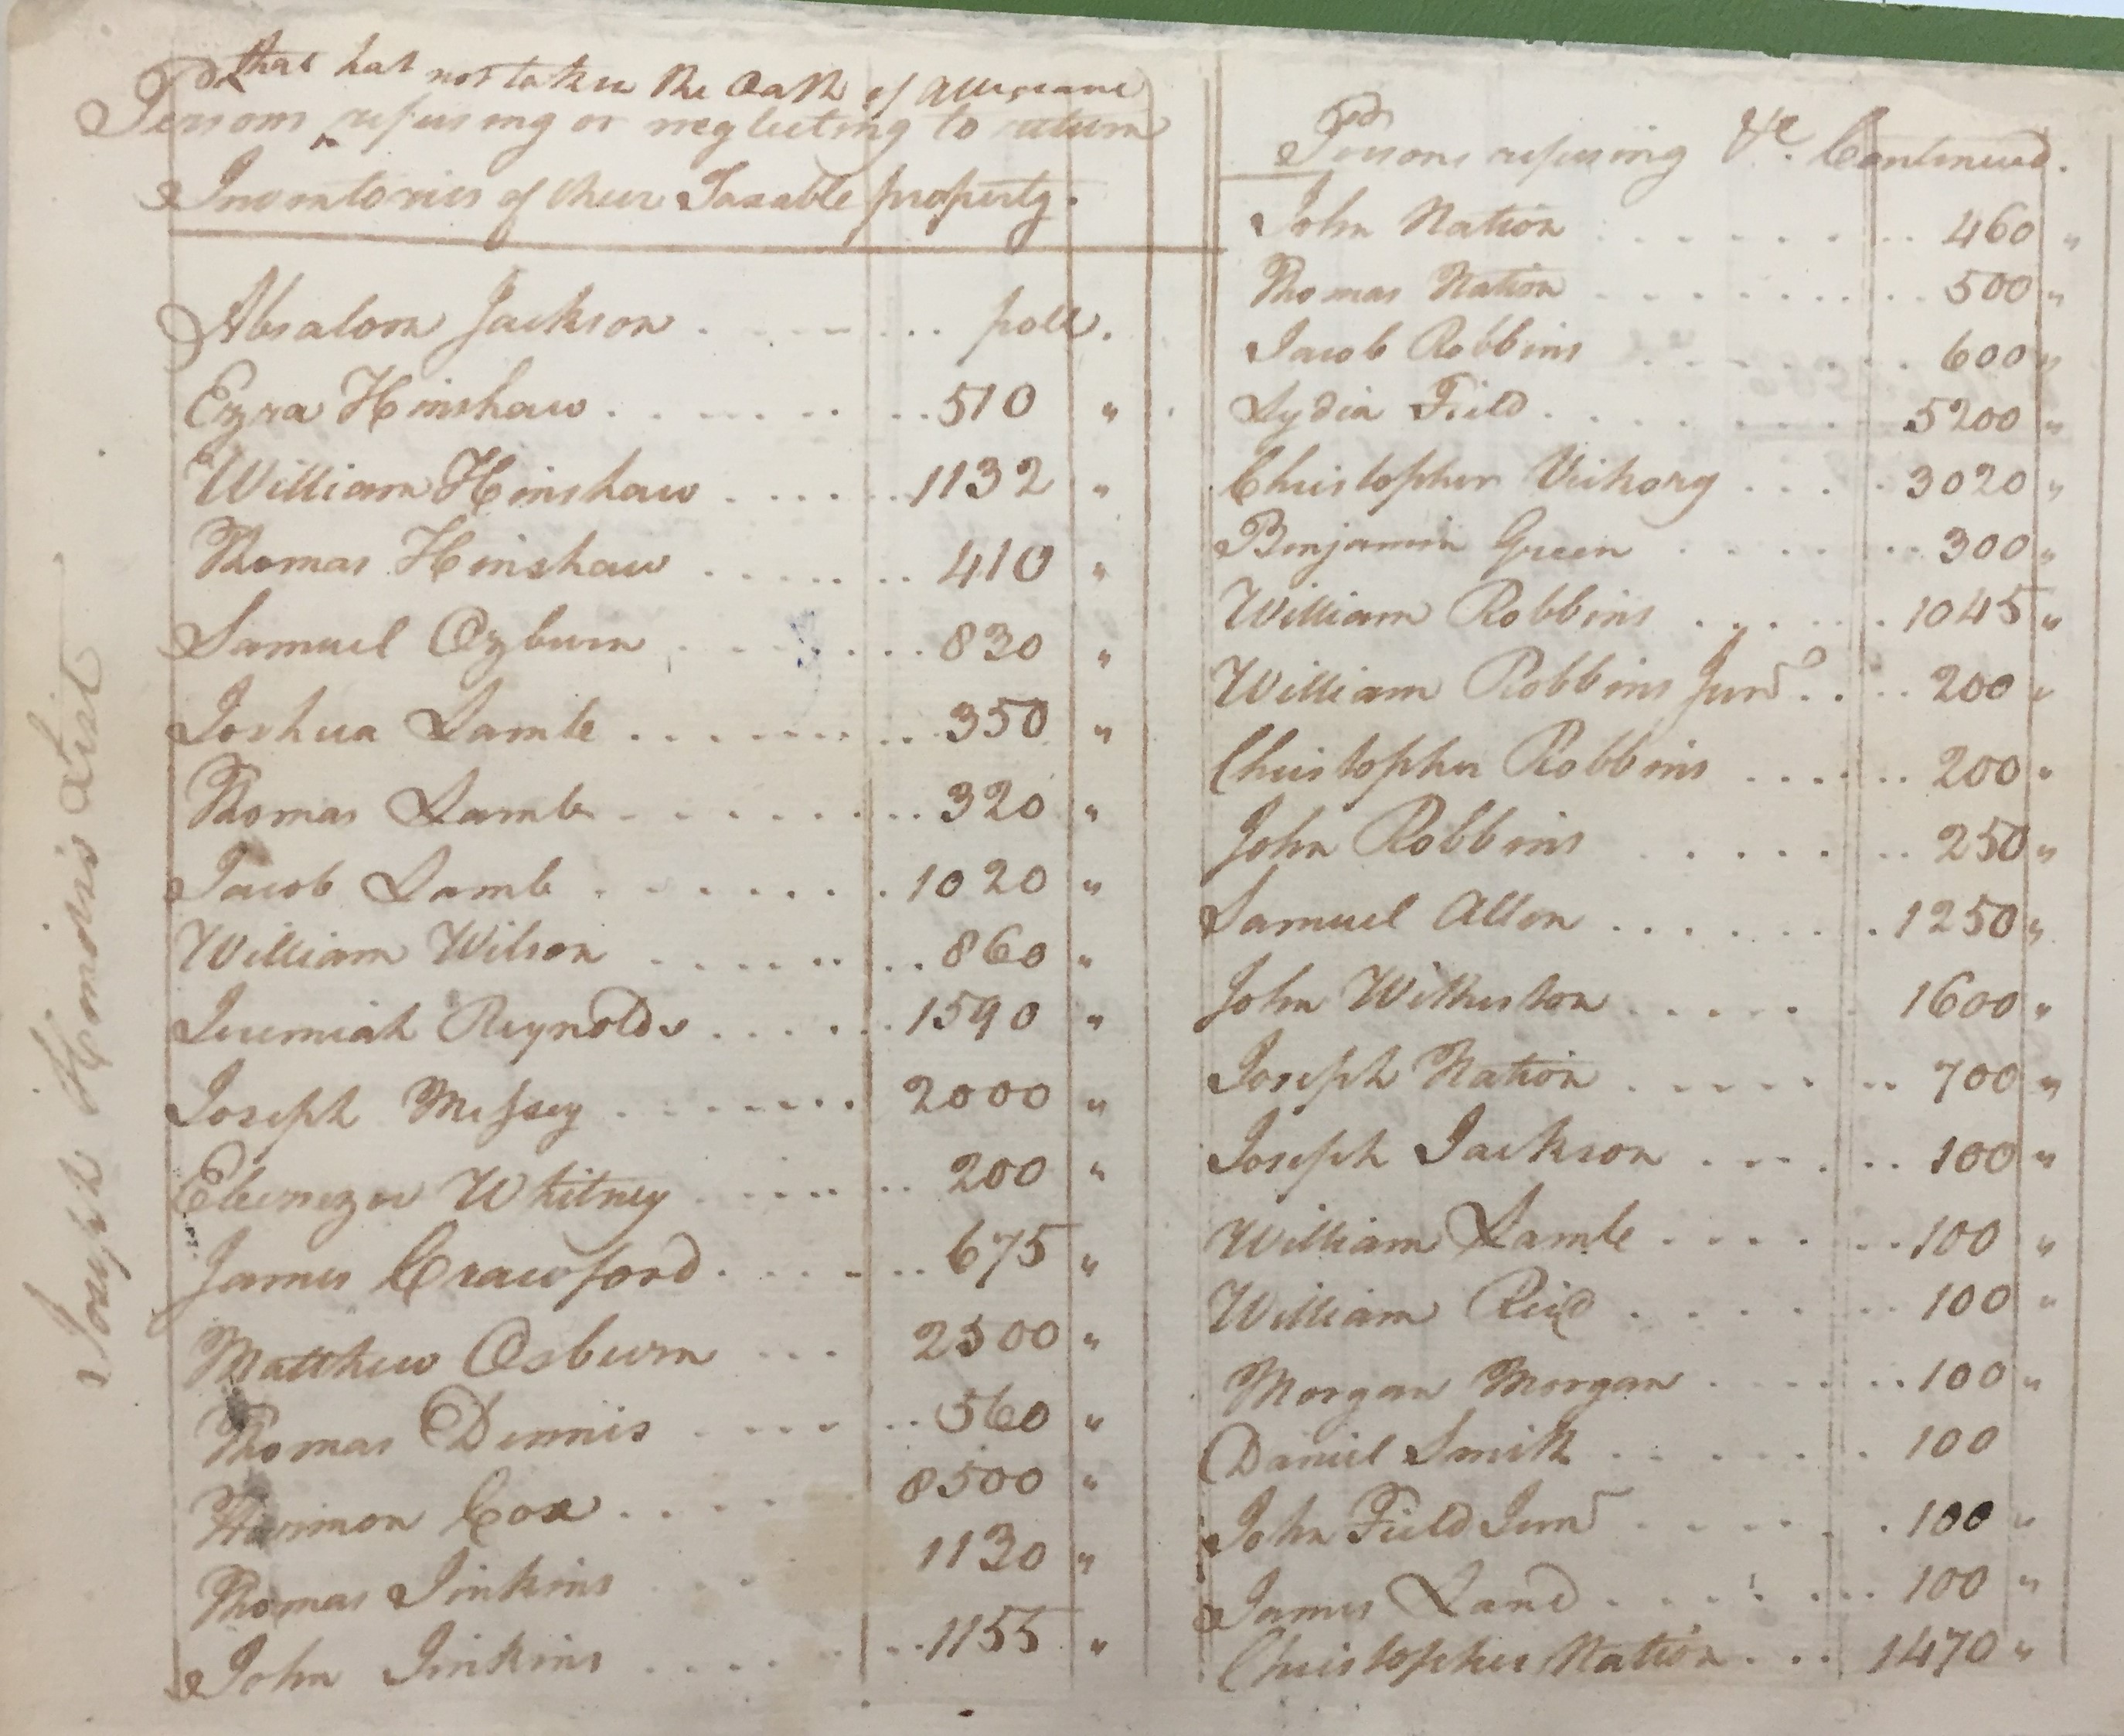 that hat not taken the Oath of Allegiance
Persons refusing or neglecting to return
Inventories of their Taxable property.
Absalom Jackson . . . . . . . poll.
Ezra Hinshaw . . . . . . . 510 "
William Hinshaw . . . . . . 1132 "
Thomas Hinshaw . . . . . . . 410 "
Samuel Ozburn . . . . . . . 830 "
Joshua Lamb . . . . . . . . 350 "
Thomas Lamb . . . . . . . . 320 "
Jacob Lamb . . . . . . . 1020 "
William Wilson . . . . . . . . 860 "
Jeremiah Reynolds . . . . . . 1590 "
Joseph Messey . . . . . . . 2000 "
Ebenezer Whitney . . . . . . . 200 "
James Crawford . . . . . . . 675 "
Matthew Osburn . . . 2500 "
Thomas Dennis . . . . . . 560 "
Harmon Cox . . . . 8500 "
Thomas Jinkins . . . 1130 "
John Jinkins . . . . . . 1155 "
Joseph List
Persons refusing &c. Continued.
John Nation . . . . . . . . 460 "
Thomas Nation . . . . . . . . 500 "
Jacob Robbins . . . . . . . 600 "
Lydia Field . . . . . . . 5200 "
Christopher Vickory . . . . 3020 "
Benjamin Green . . . . . . . 300 "
William Robbins . . . . . 1045 "
William Robbins Junr . . . . 200 "
Christopher Robbins . . . . . . 200 "
John Robbins . . . . . . . 250 "
Samuel Allen . . . . . . . . 1250 "
John Wilkerson . . . . . 1600 "
Joseph Nation . . . . . . . . 700 "
Joseph Jackson . . . . . . . 100 "
William Lamb . . . . . . . 100 "
William Reid . . . . . . . 100 "
Morgan Morgan . . . . . . . 100 "
Daniel Smith . . . . . . . 100
John Field Junr . . . . . . 100 "
James Land . . . . . . . . 100 "
Christopher Nation . . . 1470 "